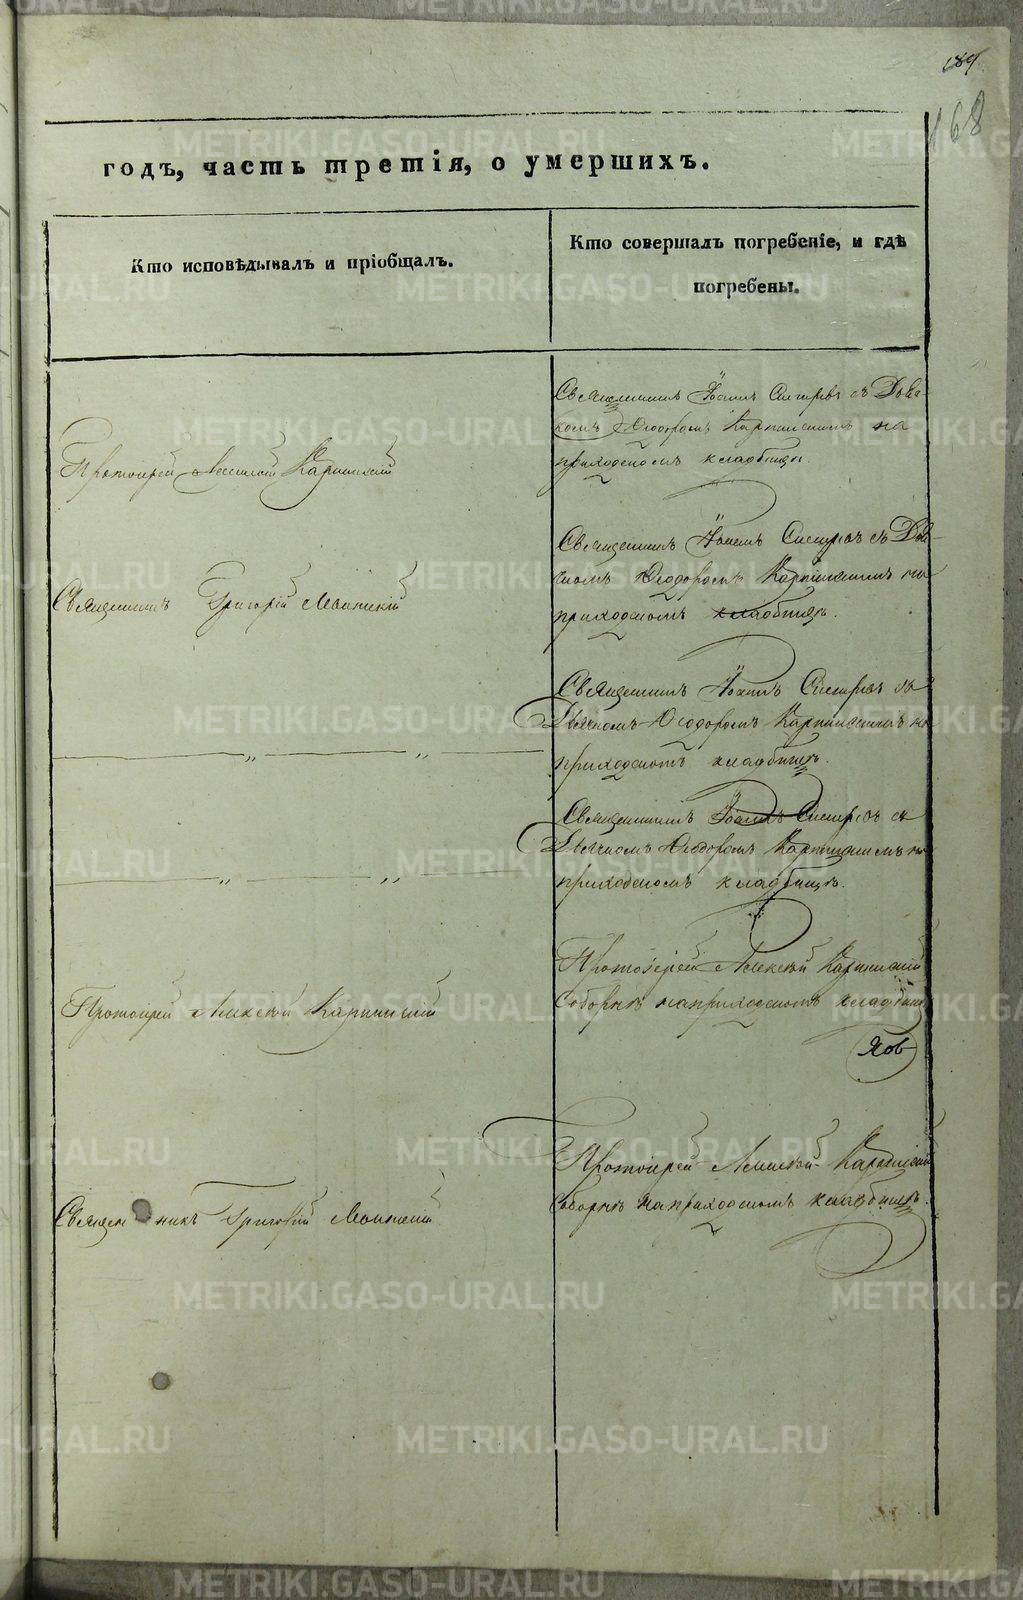 189
168
годъ, часть третія, о умершихъ.
Кто исповѣдывалъ и пріобщалъ.
Кто совершалъ погребеніе, и гдѣ
погребены.
Священникъ Іоаннъ Снегиревъ съ Дьяч-
комъ Ѳеодоромъ Карпинскимъ на
приходскомъ кладбищѣ.
Протоіерей Алексѣй Карпинскій
Священникъ Іоаннъ Снегиревъ съ Дьяч-
комъ Ѳеодоромъ Карпинскимъ на
приходскомъ кладбищѣ.
Священникъ Григорій
Священникъ Іоаннъ Снегиревъ съ
Дьячкомъ Ѳеодоромъ Карпинскимъ на
приходскомъ кладбищѣ.
— „ — „ —
Священникъ Іоаннъ Снегиревъ съ
Дьячкомъ Ѳеодоромъ Карпинскимъ на
приходскомъ кладбищѣ.
— „ — „ —
Протоіерей Алексѣй Карпинскій
Соборнѣ на приходскомъ кладбищѣ
Протоіерей Алексѣй Карпинскій
Яков
Протоіерей Алексѣй Карпинскій
соборнѣ на приходскомъ кладбищѣ.
Священникъ Григорій
METRIKI.GASO-URAL.RU